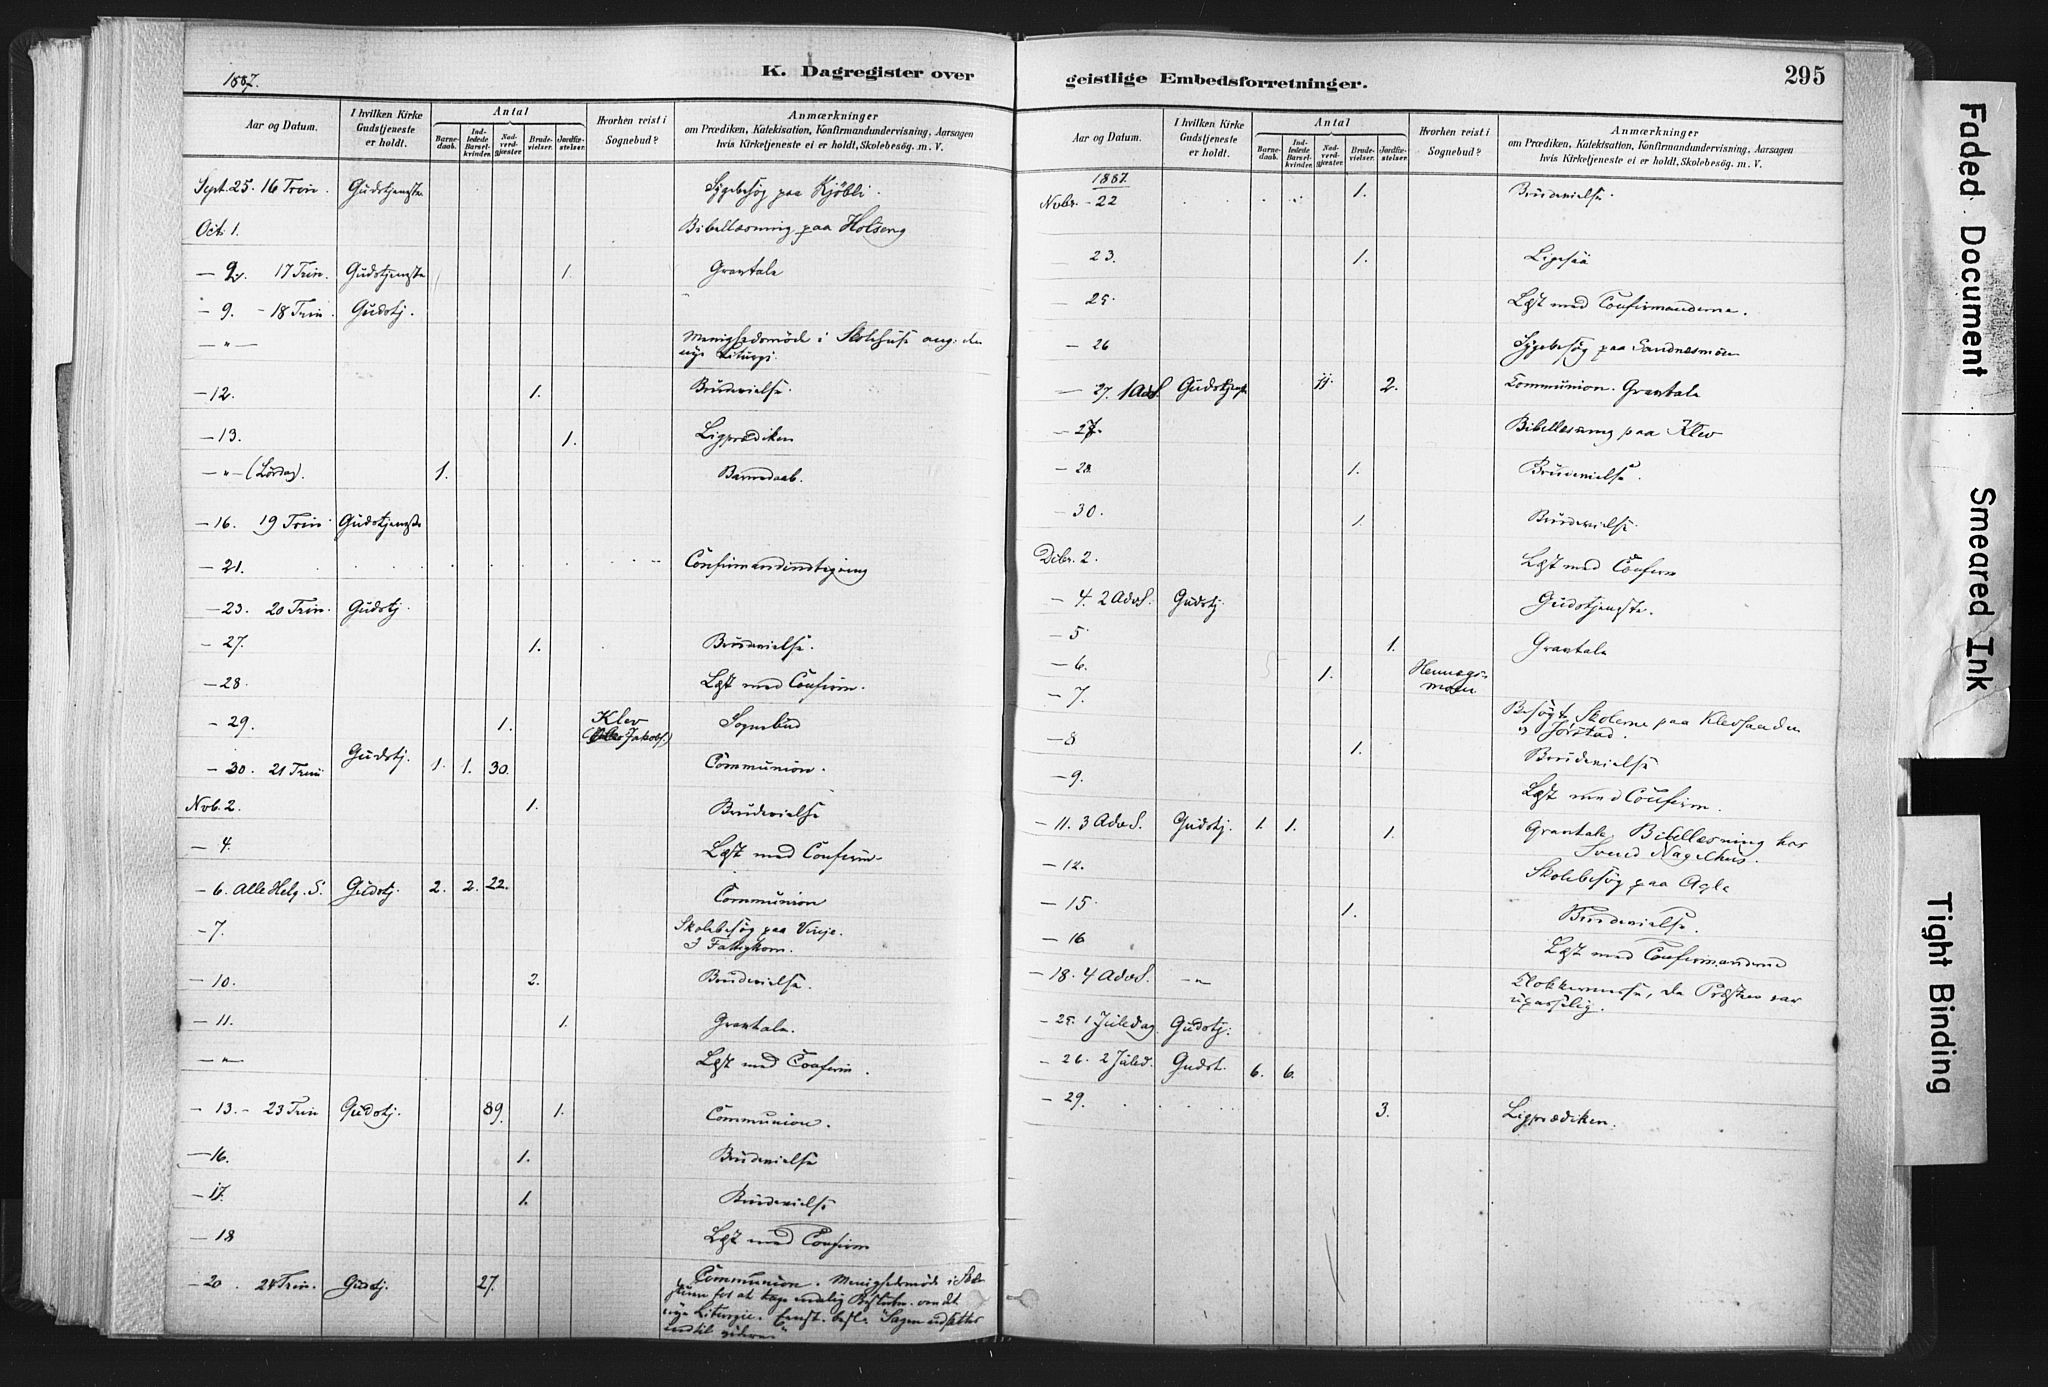 1887.
K. Dagregister over
Aar og Datum.
I hvilken Kirke Gudstjeneste er holdt.
Antal
Barnedaab.
Indledede Barselkvinder.
Nadverdgjæster.
Brudevielser.
Jordfæstelser.
Hvorhen reist i Sognebud?
Anmærkninger
om Prædiken, Katekisation, Konfirmandundervisning, Aarsagen
hvis Kirketjeneste ei er holdt, Skolebesøg. m. V.
Sept. 25. 16 Trin. Gudstjeneste Sygebesøg paa Kjöbli.
Oct. 1. Bibellæsning paa Holseng
— 2. 17 Trin. Gudstjeneste 1. Gravtale
— 9. - 18 Trin. Gudstj.
— " — Menighedsmöde i Skolehuse ang. den
nye Liturgi.
— 12. 1. Brudevielse.
— 13. 1. Ligprædiken
— " — (Lördag). 1. Barnedaab.
— 16. 19 Trin. Gudstjeneste
— 21.
— 23. 20 Trin. Gudstj.
— 27. 1. Brudevielse.
— 28. Læst med Confirm.
— 29. 1. Klev Sognebud
Jakobs.)
— 30. 21 Trin. Gudstj. 1. 1. 30. Communion.
Nvb. 2. 1. Brudevielse
— 4. Læst med Confirm.
— 6. Alle Helg. S. Gudstj. 2. 2. 22. Communion
— 7. Skolebesøg paa Vinje.
I Fattigkom.
— 10. 2. Brudevielse.
— 11. 1. Gravtale.
— " — Læst med Confirm.
— 13. - 23 Trin Gudstj. 89. 1. Communion.
— 16. 1. Brudevielse
— 17. 1. Brudevielse
— 18 Læst med Confirm
— 20. 24 Trin. Gudstj. 27. Communion. Menighedsmöde i
for at tage endelig om det
nye Liturgie. "Sagen udsættes
indtil videre"
geistlige Embedsforretninger.
295
Aar og Datum.
I hvilken Kirke Gudstjeneste er holdt.
Antal
Barnedaab.
Indledede Barselkvinder.
Nadverdgjæster.
Brudevielser.
Jordfæstelser.
Hvorhen reist i Sognebud?
Anmærkninger
om Prædiken, Katekisation, Konfirmandundervisning, Aarsagen
hvis Kirketjeneste ei er holdt, Skolebesøg. m. V.
1887.
Nvbr. - 22 1. Brudevielse.
— 23. 1.
— 25. Læst med Confirmanderne.
— 26 Sygebesøg paa Sandnesmoen
— 27. 1 Adv. S. Gudstjeneste 11. 2. Communion. Gravtale
— 27. Bibellæsning paa Klev
— 28. 1. Brudevielse.
— 30. 1. Brudevielse.
Dcbr. 2. Læst med Confirm
— 4. 2 Adv. S. Gudstj. Gudstjeneste.
— 5 1. Gravtale
— 6. 1.
— 7. Besøgt Skolerne paa
og Jørstad.
— 8 1. Brudevielse
— 9. Læst med Confirm.
— 11. 3 Adv. S. Gudstj. 1. 1. 1. Gravtale. Bibellæsning hos
Svend Nagelhus.
— 12. Skolebesøg paa Agle
— 15 1. Brudevielse.
— 16 Læst med Confirmanderne
— 18. 4 Adv. S. — " Klokkermesse, da Præsten var
upasselig.
— 25. 1 Juledag. Gudstj.
— 26. 2 Juled. Gudst. 6. 6.
— 29. 3. Ligprædiken.
Faded Document
Smeared Ink
Tight Binding